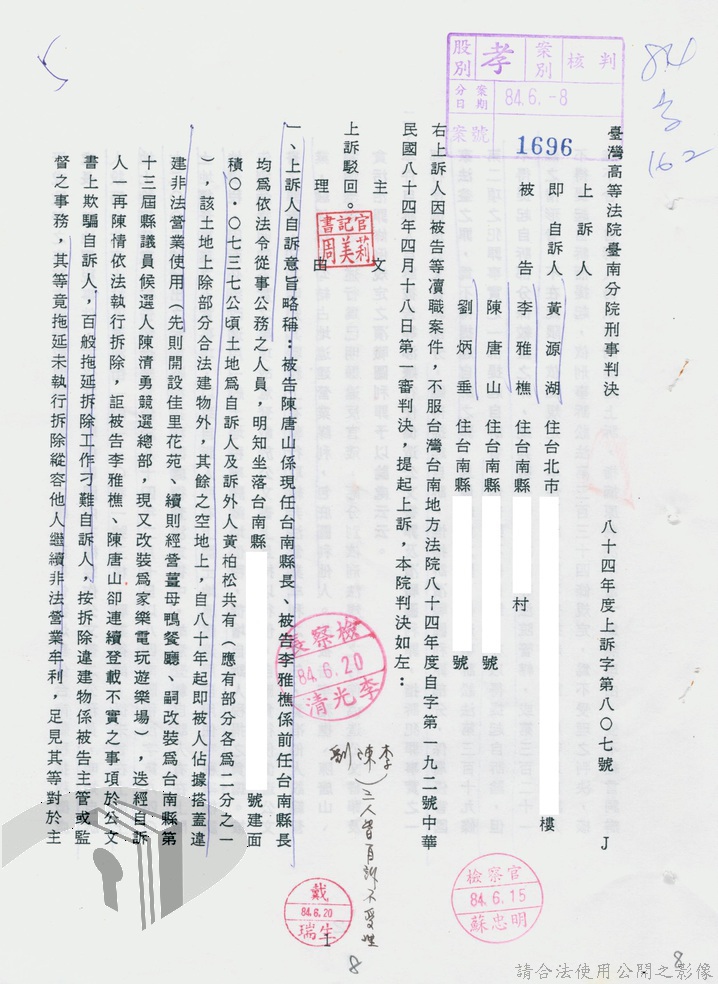 臺灣高等法院臺南分院刑事判決　八十四年度上訴字第八〇七號　J
上訴人
即自訴人　黃源湖　住台北市　樓
被告　李雅樵　住台南縣　村
陳唐山　住台南縣　號
劉炳垂　住台南縣　號
右上訴人因被告等瀆職案件，不服台灣台南地方法院八十四年度自字第一九二號中華
民國八十四年四月十八日第一審判決，提起上訴，本院判決如左：
主文
上訴駁回。
理由
一、上訴人自訴意旨略稱：被告陳唐山係現任台南縣長、被告李雅樵係前任台南縣長
均為依法令從事公務之人員，明知坐落台南縣　號建面
積〇．〇七三七公頃土地為自訴人及訴外人黃柏松共有（應有部分各為二分之一
），該土地上除部分合法建物外，其餘之空地上，自八十年起即被人佔據搭蓋違
建非法營業使用（先則開設佳里花苑、續則經營薑母鴨餐廳、嗣改裝為台南縣第
十三屆縣議員候選人陳清勇競選總部，現又改裝為家樂電玩遊樂場），迭經自訴
人一再陳情依法執行拆除，詎被告李雅樵、陳唐山卻連續登載不實之事項於公文
書上欺騙自訴人，百般拖延拆除工作刁難自訴人，按拆除違建物係被告主管或監
督之事務，其等竟拖延未執行拆除縱容他人繼續非法營業牟利，足見其等對於主
股別　孝　案別　核判
分案日期　84.6.-8
案號　1696
84
162
書記官
周美莉
檢察長
84.6.20
李光清
李
陳
劉
三人皆自訴不受理
戴
84.6.20
瑞生
檢察官
84.6.15
蘇忠明
1
8
8
請合法使用公開之影像